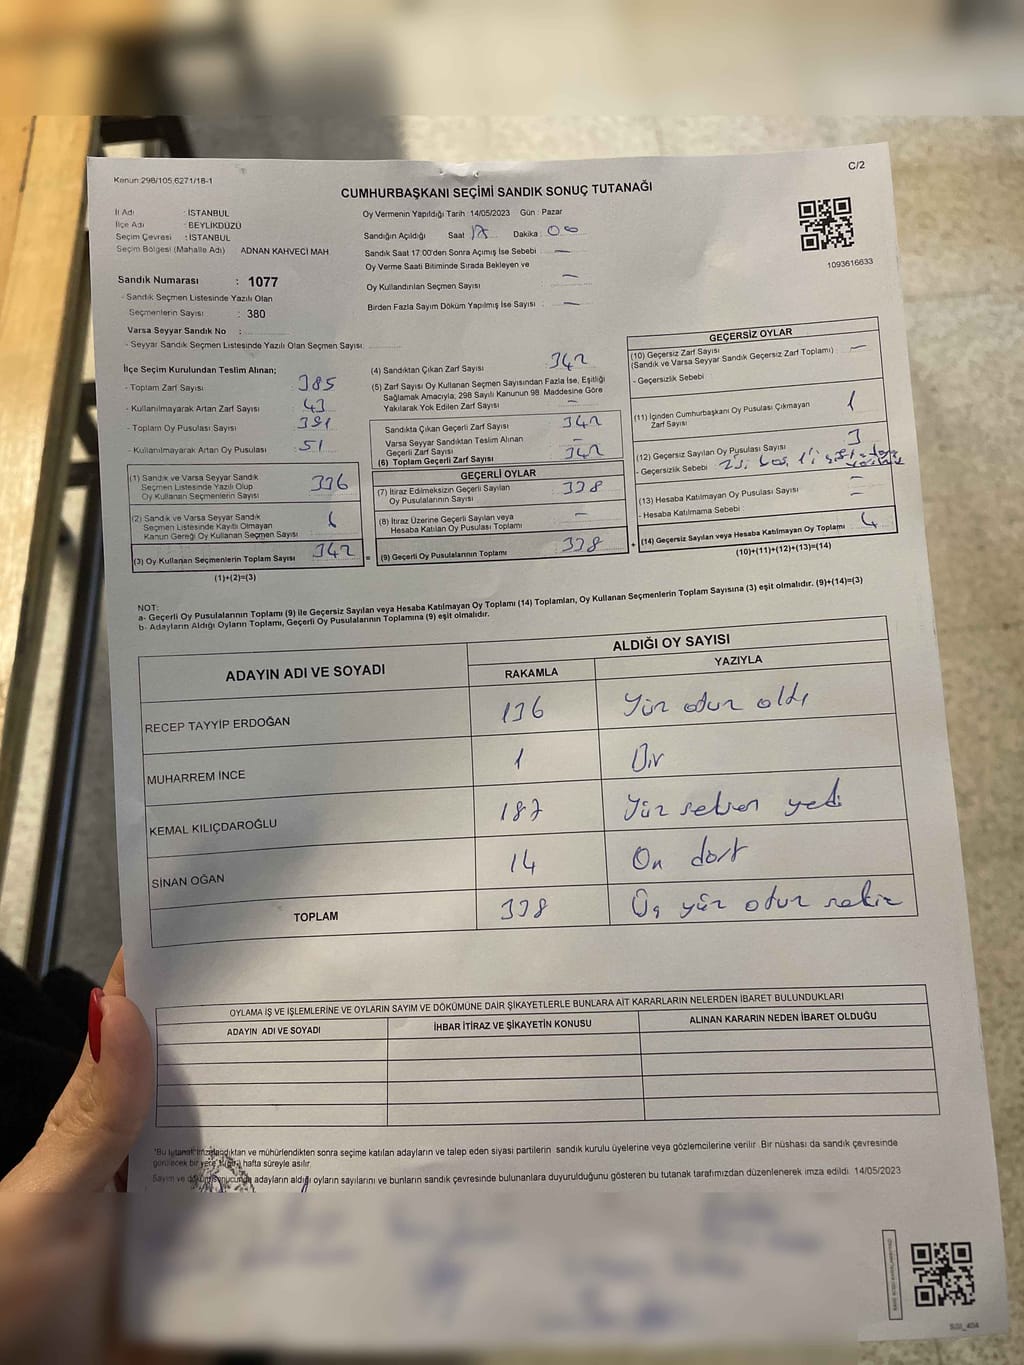 Kanun:298/105,6271/18-1
C/2
CUMHURBAŞKANI SEÇİMİ SANDIK SONUÇ TUTANAĞI
İl Adı : İSTANBUL
İlçe Adı : BEYLİKDÜZÜ
Seçim Çevresi : İSTANBUL
Seçim Bölgesi (Mahalle Adı) ADNAN KAHVECİ MAH
Sandık Numarası : 1077
- Sandık Seçmen Listesinde Yazılı Olan
Seçmenlerin Sayısı : 380
Varsa Seyyar Sandık No :
- Seyyar Sandık Seçmen Listesinde Yazılı Olan Seçmen Sayısı:
Oy Vermenin Yapıldığı Tarih : 14/05/2023 Gün : Pazar
Sandığın Açıldığı Saat 17 Dakika : 00
Sandık Saat 17:00'den Sonra Açımış İse Sebebi : —
Oy Verme Saati Bitiminde Sırada Bekleyen ve
Oy Kullandırılan Seçmen Sayısı : —
Birden Fazla Sayım Döküm Yapılmış İse Sayısı : —
1093616633
İlçe Seçim Kurulundan Teslim Alınan;
- Toplam Zarf Sayısı : 385
- Kullanılmayarak Artan Zarf Sayısı : 43
- Toplam Oy Pusulası Sayısı : 391
- Kullanılmayarak Artan Oy Pusulası : 51
(1) Sandık ve Varsa Seyyar Sandık
Seçmen Listesinde Yazılı Olup
Oy Kullanan Seçmenlerin Sayısı 336
(2) Sandık ve Varsa Seyyar Sandık
Seçmen Listesinde Kayıtlı Olmayan
Kanun Gereği Oy Kullanan Seçmen Sayısı 6
(3) Oy Kullanan Seçmenlerin Toplam Sayısı 342 =
(1)+(2)=(3)
(4) Sandıktan Çıkan Zarf Sayısı : 342
(5) Zarf Sayısı Oy Kullanan Seçmen Sayısından Fazla İse, Eşitliği
Sağlamak Amacıyla, 298 Sayılı Kanunun 98. Maddesine Göre
Yakılarak Yok Edilen Zarf Sayısı : —
Sandıkta Çıkan Geçerli Zarf Sayısı : 342
Varsa Seyyar Sandıktan Teslim Alınan
Geçerli Zarf Sayısı : —
(6) Toplam Geçerli Zarf Sayısı : 342
GEÇERLİ OYLAR
(7) İtiraz Edilmeksizin Geçerli Sayılan
Oy Pusulalarının Sayısı : 338
(8) İtiraz Üzerine Geçerli Sayılan veya
Hesaba Katılan Oy Pusulası Toplamı : —
(9) Geçerli Oy Pusulalarının Toplamı 338 +
GEÇERSİZ OYLAR
(10) Geçersiz Zarf Sayısı
(Sandık ve Varsa Seyyar Sandık Geçersiz Zarf Toplamı) : —
- Geçersizlik Sebebi
(11) İçinden Cumhurbaşkanı Oy Pusulası Çıkmayan
Zarf Sayısı 1
(12) Geçersiz Sayılan Oy Pusulası Sayısı : 3
- Geçersizlik Sebebi : 2'si boş 1'i
(13) Hesaba Katılmayan Oy Pusulası Sayısı : —
- Hesaba Katılmama Sebebi : —
(14) Geçersiz Sayılan veya Hesaba Katılmayan Oy Toplamı 4
(10)+(11)+(12)+(13)=(14)
NOT:
a- Geçerli Oy Pusulalarının Toplamı (9) ile Geçersiz Sayılan veya Hesaba Katılmayan Oy Toplamı (14) Toplamları, Oy Kullanan Seçmenlerin Toplam Sayısına (3) eşit olmalıdır. (9)+(14)=(3)
b- Adayların Aldığı Oyların Toplamı, Geçerli Oy Pusulalarının Toplamına (9) eşit olmalıdır.
ADAYIN ADI VE SOYADI
ALDIĞI OY SAYISI
RAKAMLA YAZIYLA
RECEP TAYYİP ERDOĞAN 136 Yüz otuz altı
MUHARREM İNCE 1 Bir
KEMAL KILIÇDAROĞLU 187 Yüz seksen yedi
SİNAN OĞAN 14 On dört
TOPLAM 338 Üç yüz otuz sekiz
OYLAMA İŞ VE İŞLEMLERİNE VE OYLARIN SAYIM VE DÖKÜMÜNE DAİR ŞİKAYETLERLE BUNLARA AİT KARARLARIN NELERDEN İBARET BULUNDUKLARI
ADAYIN ADI VE SOYADI İHBAR İTİRAZ VE ŞİKAYETİN KONUSU ALINAN KARARIN NEDEN İBARET OLDUĞU
*Bu tutanak imzalandıktan ve mühürlendikten sonra seçime katılan adayların ve talep eden siyasi partilerin sandık kurulu üyelerine veya gözlemcilerine verilir. Bir nüshası da sandık çevresinde
görülecek bir yere 1 (bir) hafta süreyle asılır.
Sayım ve döküm sonucunda adayların aldığı oyların sayılarını ve bunların sandık çevresinde bulunanlara duyurulduğunu gösteren bu tutanak tarafımızdan düzenlenerek imza edildi. 14/05/2023